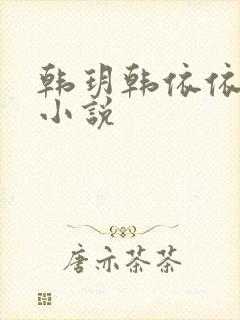 韩玥韩依依
小说
唐亦茶茶